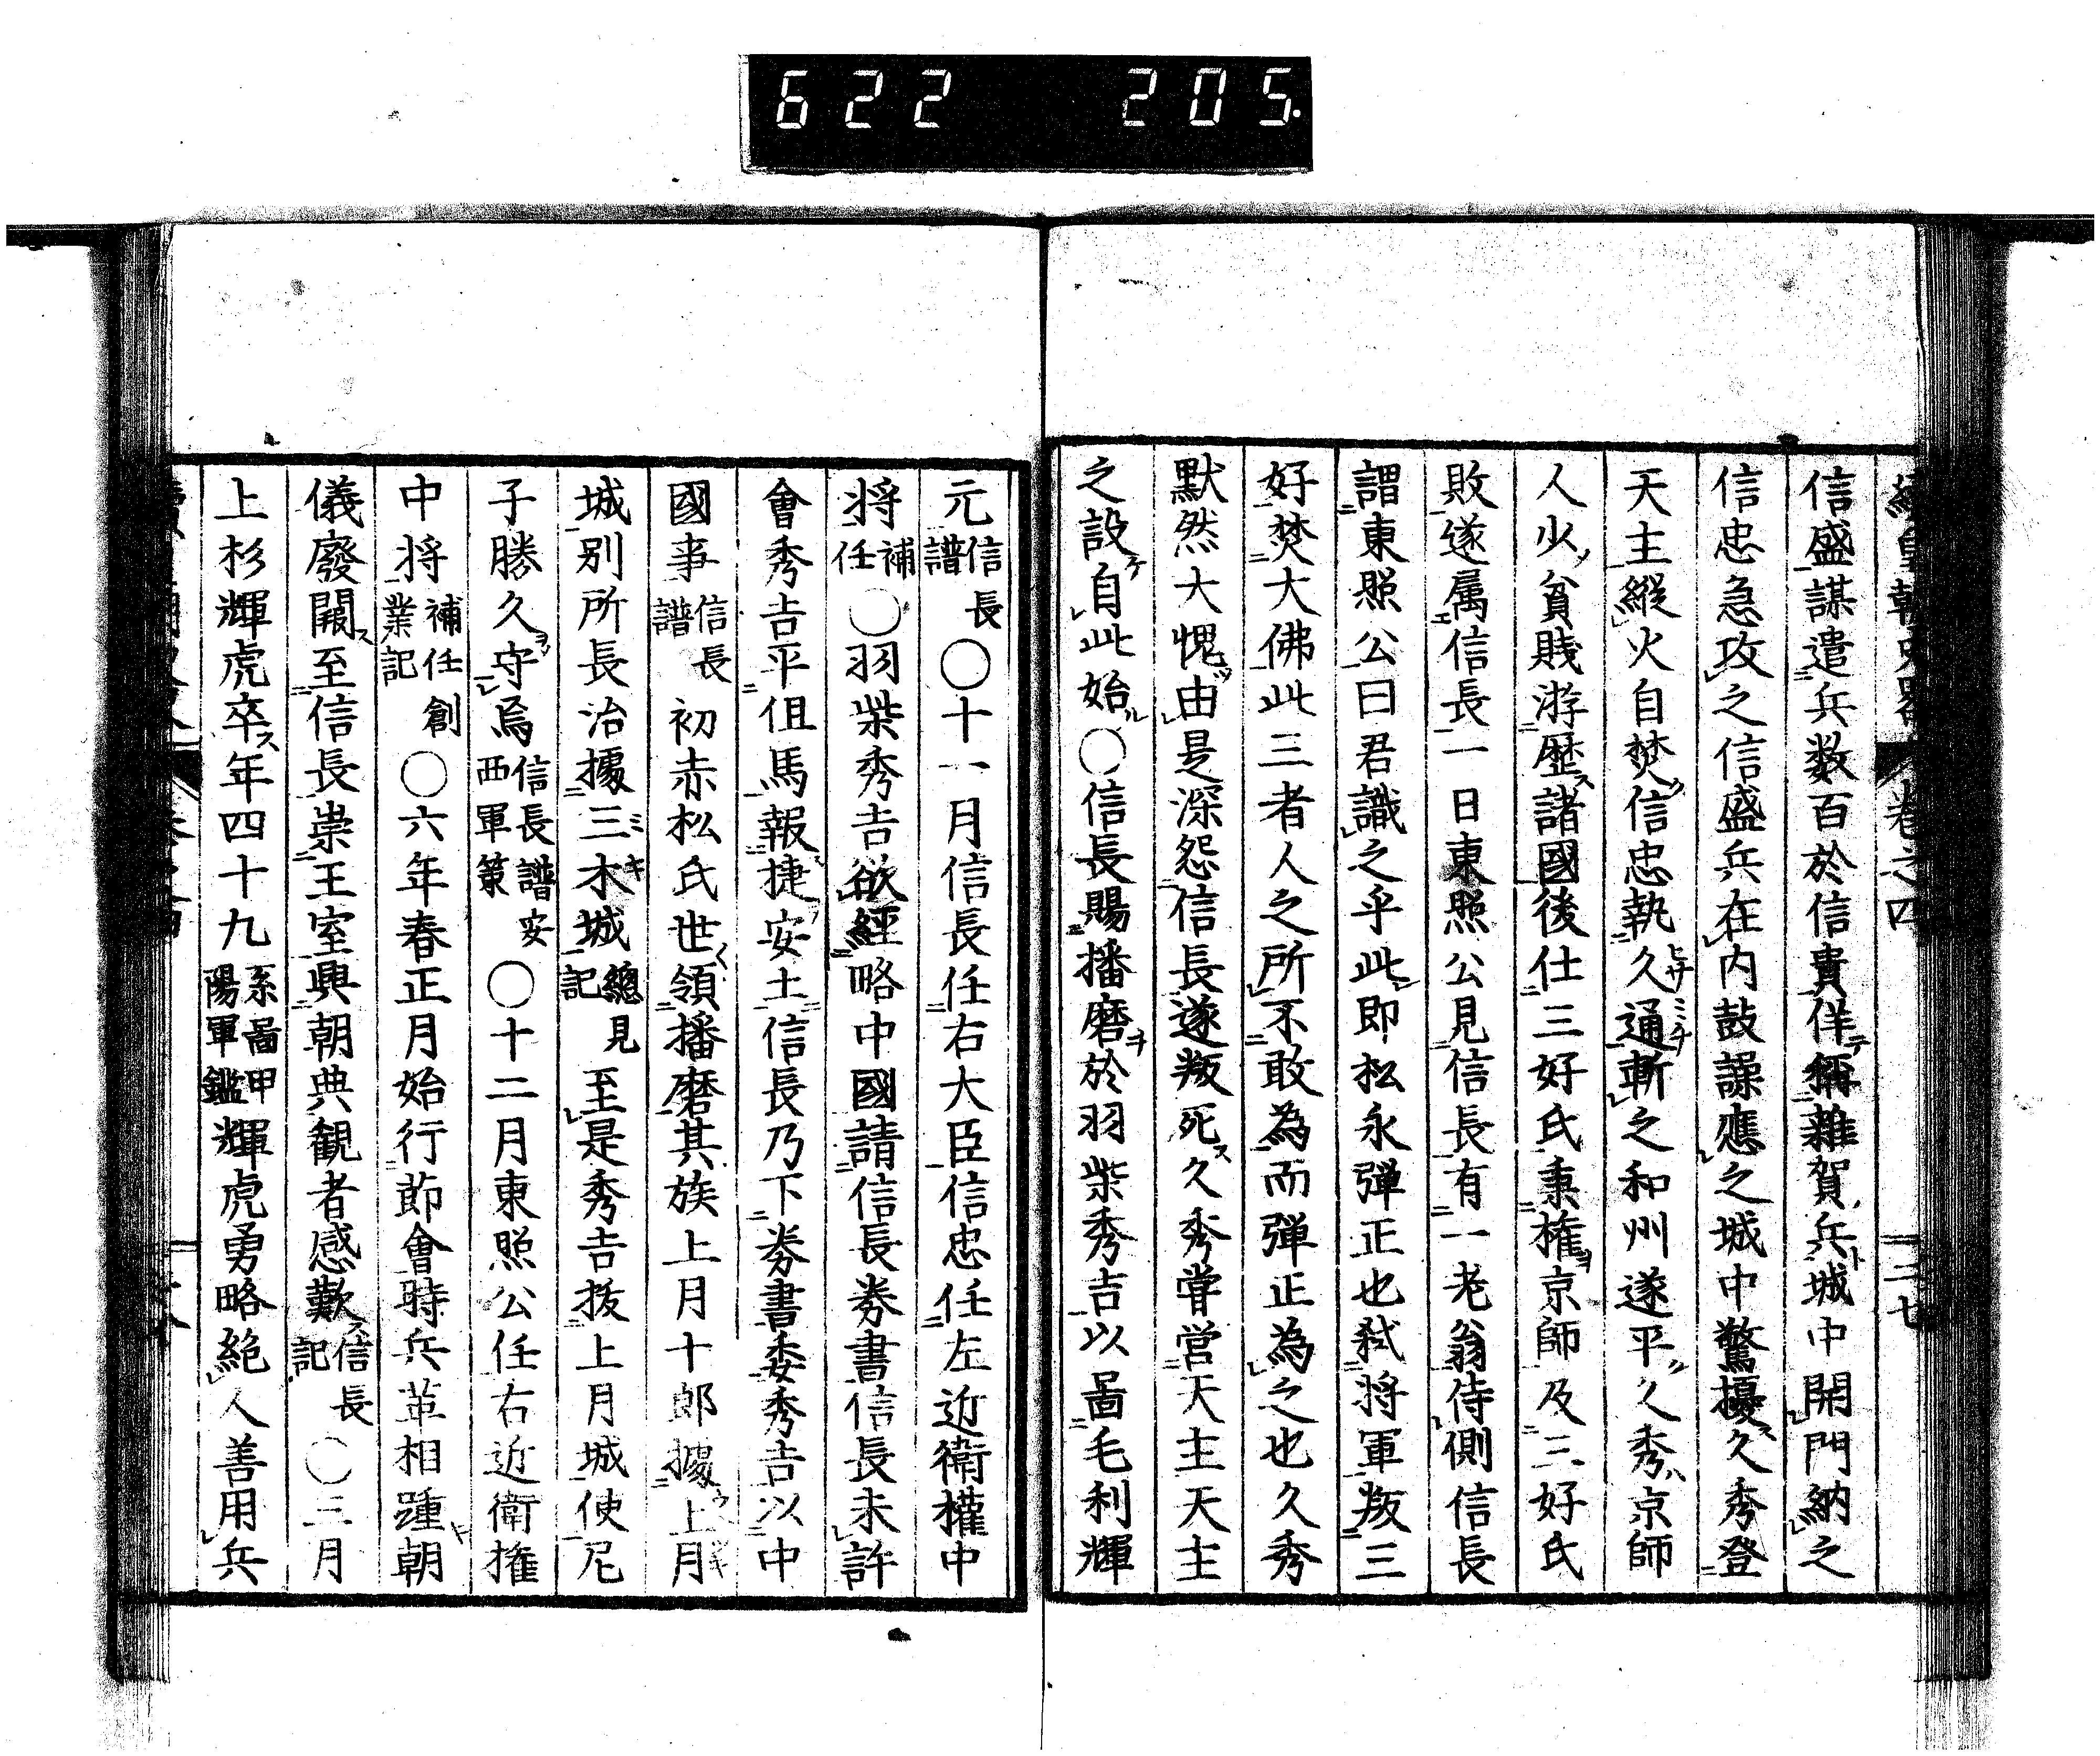 622 205.
卷之四
三七
信盛謀遣兵数百於信貴佯稱雜賀兵城中開門納之
信忠急攻之信盛兵在内鼓譟應之城中驚擾久秀登
天主縱火自焚信忠執久通斬之和州遂平久秀京師
人少貧賤游歴諸國後仕三好氏秉權京師及三好氏
敗遂属信長一日東照公見信長有一老翁侍側信長
謂東照公曰君識之乎此即松永彈正也弑将軍叛三
好焚大佛此三者人之所不敢為而彈正為之也久秀
默然大愧由是深怨信長遂叛死久秀嘗営天主天主
之設自此始〇信長賜播磨於羽柴秀吉以啚毛利輝
元信長譜〇十一月信長任右大臣信忠任左近衛權中
将補任〇羽柴秀吉欲經略中國請信長券書信長未許
會秀吉平但馬報捷安土信長乃下券書委秀吉以中
國事信長譜初赤松氏世領播磨其族上月十郎據上月
城别所長治據三木城總見記至是秀吉拔上月城使尼
子勝久守焉信長譜安西軍策〇十二月東照公任右近衛權
中将補任創業記〇六年春正月始行節會時兵革相踵朝
儀廢闕至信長崇王室興朝典観者感歎信長記〇三月
上杉輝虎卒年四十九系啚甲陽軍鑑輝虎勇略絶人善用兵